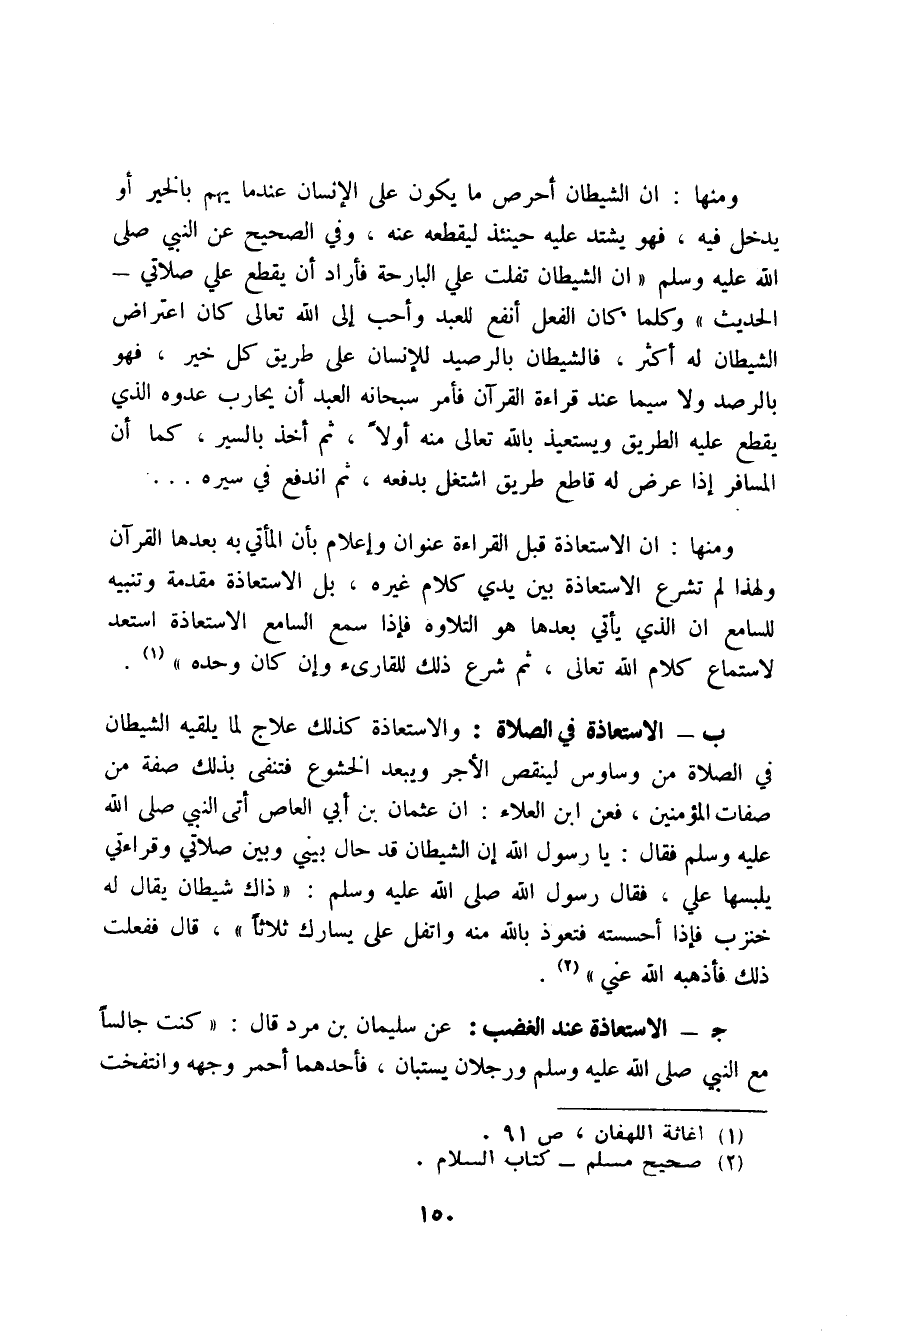 ومنها : ان الشيطان أحرص ما يكون على الإنسان عندما يهم بالخير أو
يدخل فيه ، فهو يشتد عليه حينئذ ليقطعه عنه ، وفي الصحيح عن النبي صلى
الله عليه وسلم « ان الشيطان تفلت علي البارحة فأراد أن يقطع علي صلاتي –
الحديث » وكلما كان الفعل أنفع للعبد وأحب إلى الله تعالى كان اعتراض
الشيطان له أكثر ، فالشيطان بالرصيد للإنسان على طريق كل خير ، فهو
بالرصد ولا سيما عند قراءة القرآن فأمر سبحانه العبد أن يحارب عدوه الذي
يقطع عليه الطريق ويستعيذ بالله تعالى منه أولاً ، ثم أخذ بالسير ، كما أن
المسافر إذا عرض له قاطع طريق اشتغل بدفعه ، ثم اندفع في سيره . . .
ومنها : ان الاستعاذة قبل القراءة عنوان وإعلام بأن المأتي به بعدها القرآن
ولهذا لم تشرع الاستعاذة بين يدي كلام غيره ، بل الاستعاذة مقدمة وتنبيه
للسامع ان الذي يأتي بعدها هو التلاوه فإذا سمع السامع الاستعاذة استعد
لاستماع كلام الله تعالى ، ثم شرع ذلك للقارىء وإن كان وحده » (١) .
ب – الاستعاذة في الصلاة : والاستعاذة كذلك علاج لما يلقيه الشيطان
في الصلاة من وساوس لينقص الأجر ويبعد الخشوع فتنفى بذلك صفة من
صفات المؤمنين ، فعن ابن العلاء : ان عثمان بن أبي العاص أتى النبي صلى الله
عليه وسلم فقال : يا رسول الله إن الشيطان قد حال بيني وبين صلاتي وقراءتي
يلبسها علي ، فقال رسول الله صلى الله عليه وسلم : « ذاك شيطان يقال له
خنزب فإذا أحسسته فتعوذ بالله منه واتفل على يسارك ثلاثاً » ، قال ففعلت
ذلك فأذهبه الله عني » (٢) .
جـ – الاستعاذة عند الغضب : عن سليمان بن مرد قال : « كنت جالساً
مع النبي صلى الله عليه وسلم ورجلان يستبان ، فأحدهما أحمر وجهه وانتفخت
(١) اغاثة اللهفان ، ص ٩١ .
(٢) صحيح مسلم – كتاب السلام .
١٥٠